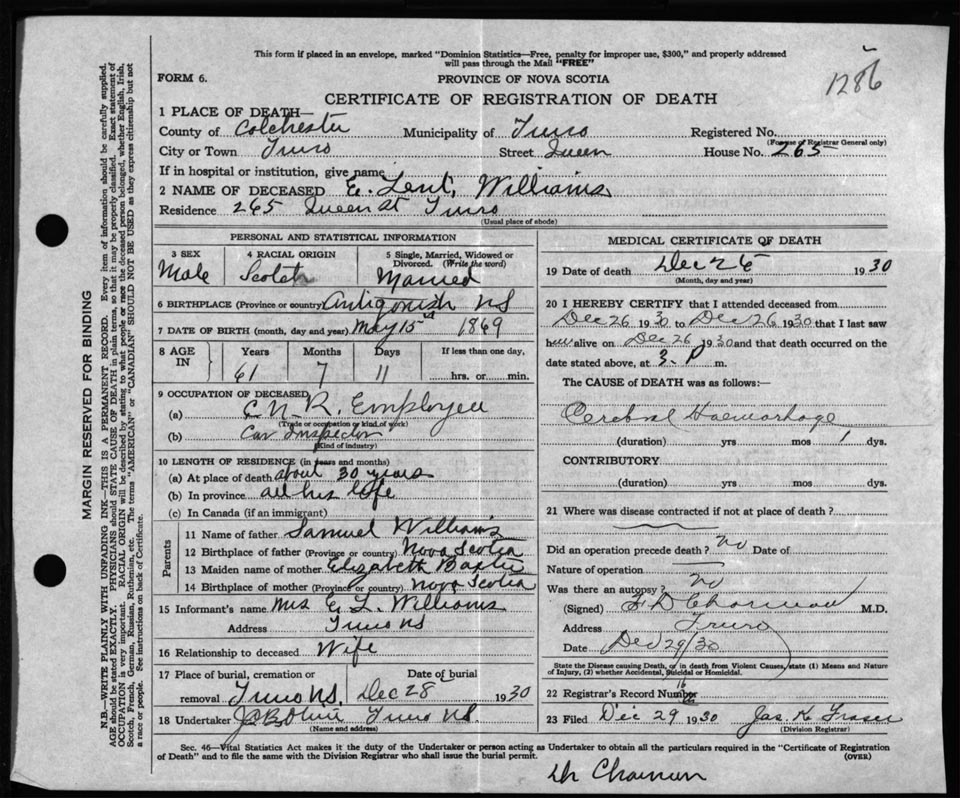 This form if placed in an envelope, marked "Dominion Statistics—Free, penalty for improper use, $300," and properly addressed
will pass through the Mail "FREE"
1286
FORM 6.
PROVINCE OF NOVA SCOTIA
CERTIFICATE OF REGISTRATION OF DEATH
1 PLACE OF DEATH—
County of Colchester Municipality of Truro Registered No.
(For use of Registrar General only)
City or Town Truro Street Queen House No. 265
If in hospital or institution, give name
2 NAME OF DECEASED E. Lent, Williams
Residence 265 Queen St Truro
(Usual place of abode)
PERSONAL AND STATISTICAL INFORMATION
3 SEX
Male
4 RACIAL ORIGIN
Scotch
5 Single, Married, Widowed or
Divorced. (Write the word)
Married
6 BIRTHPLACE (Province or country) Antigonish NS
7 DATE OF BIRTH (month, day and year) May 15 1869
8 AGE
IN
Years Months Days If less than one day,
61 7 11 hrs. or min.
9 OCCUPATION OF DECEASED
(a) C.N.R. Employee
(Trade or occupation or kind of work)
(b) Car Inspector
(Kind of industry)
10 LENGTH OF RESIDENCE (in years and months)
(a) At place of death about 30 years
(b) In province all his life
(c) In Canada (if an immigrant)
Parents
11 Name of father Samuel Williams
12 Birthplace of father (Province or country) Nova Scotia
13 Maiden name of mother Elizabeth
14 Birthplace of mother (Province or country) Nova Scotia
15 Informant's name Mrs E. L. Williams
Address Truro NS
16 Relationship to deceased Wife
17 Place of burial, cremation or Date of burial
removal Truro NS. Dec 28 1930
18 Undertaker Truro NS.
(Name and address)
MEDICAL CERTIFICATE OF DEATH
19 Date of death Dec 26 1930
(Month, day and year)
20 I HEREBY CERTIFY that I attended deceased from
Dec 26 1930 to Dec 26 1930 that I last saw
him alive on Dec 26 1930 and that death occurred on the
date stated above, at 3. P m.
The CAUSE of DEATH was as follows:—
Cerebral Haemorhage
(duration) yrs mos 1 dys.
CONTRIBUTORY
(duration) yrs mos dys.
21 Where was disease contracted if not at place of death?
Did an operation precede death? no Date of
Nature of operation
Was there an autopsy? no
(Signed) M.D.
Address Truro
Date Dec 29/30
State the Disease causing Death, or in death from Violent Causes, state (1) Means and Nature
of Injury, (2) whether Accidental, Suicidal or Homicidal.
22 Registrar's Record Number
23 Filed Dec 29 1930 Jas. K. Fraser
(Division Registrar)
Sec. 46—Vital Statistics Act makes it the duty of the Undertaker or person acting as Undertaker to obtain all the particulars required in the "Certificate of Registration
of Death" and to file the same with the Division Registrar who shall issue the burial permit. (OVER)
MARGIN RESERVED FOR BINDING
N.B.—WRITE PLAINLY WITH UNFADING INK—THIS IS A PERMANENT RECORD. Every item of information should be carefully supplied.
AGE should be stated EXACTLY. PHYSICIANS should STATE CAUSE OF DEATH in plain terms, so that it may be properly classified. Exact statement of
OCCUPATION is very important. RACIAL ORIGIN will be described by stating to what people or race the deceased person belonged, whether English, Irish,
Scotch, French, German, Russian, Ruthenian, etc. The terms "AMERICAN" or "CANADIAN" SHOULD NOT BE USED as they express citizenship but not
a race or people. See instructions on back of Certificate.